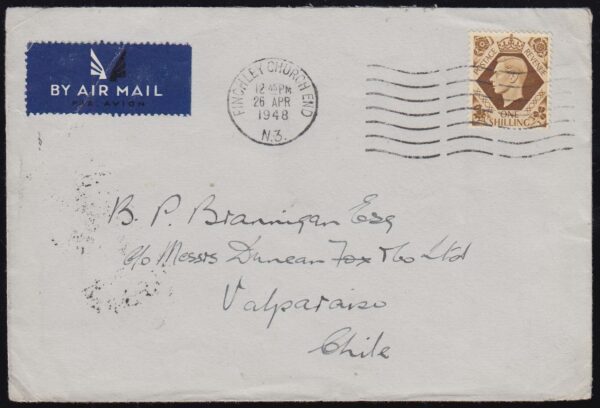 BY AIR MAIL
PAR AVION
FINCHLEY CHURCH END
12 45 PM
26 APR
1948
N.3.
POSTAGE REVENUE
ONE
SHILLING
B. P. Brannigan Esq
c/o Messrs Duncan Fox & Co Ltd
Valparaiso
Chile